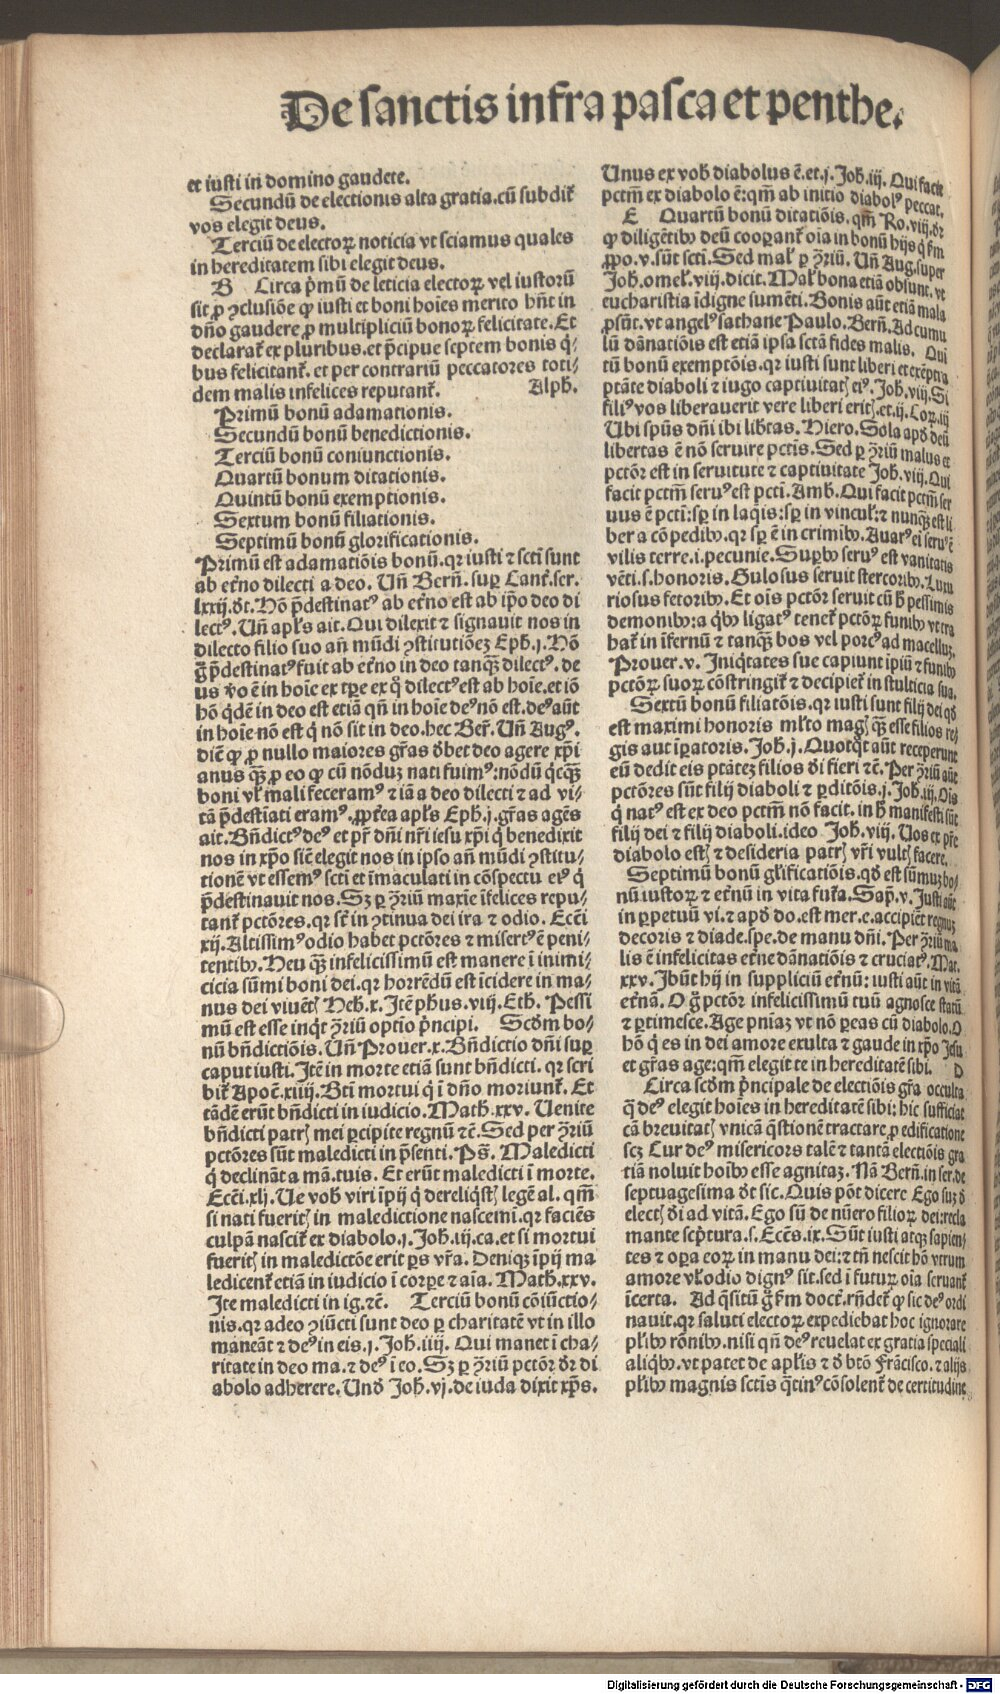 De sanctis infra pasca et penthe.
et iusti in domino gaudete.
Secundū de electionis alta gratia. cū subdit᷑
vos elegit deus.
Terciū de electoꝝ noticia vt sciamus quales
in hereditatem sibi elegit deus.
B Circa p̄mū de leticia electoꝝ vel iustorū
sit ꝓ ꝯclusiōe ꝙ iusti et boni hoīes merito hn̄t in
dn̄o gaudere ꝓ multipliciū bonoꝝ felicitate. Et
declarat᷑ ex pluribus. et p̄cipue septem bonis q̇⸗
bus felicitant᷑. et per contrariū peccatores toti⸗
dem malis infelices reputant᷑. Alph.
Primū bonū adamationis.
Secundū bonū benedictionis.
Terciū bonū coniunctionis.
Quartū bonum ditationis.
Quintū bonū exemptionis.
Sextum bonū filiationis.
Septimū bonū glorificationis.
Primū est adamatiōis bonū. qꝛ iusti ⁊ scti sunt
ab et̄no dilecti a deo. Uñ Berñ. suꝑ Cant᷑. ser.
lxxij. d̄t. Hō p̄destinatꝰ ab et̄no est ab ip̄o deo di
lectꝰ. Uñ apl̄s ait. Qui dilexit ⁊ signauit nos in
dilecto filio suo añ mūdi ꝯstitutiōeꝫ Eph. j. Hō
g̊ p̄destinatꝰ fuit ab et̄no in deo tanqꝫ dilectꝰ. de
us v̊o ē in hoīe ex tꝑe ex q̊ dilectꝰ est ab hoīe. et iō
hō q̇dē in deo est etiā qn̄ in hoīe deꝰ nō est. deꝰ aūt
in hoīe nō est q̇ nō sit in deo. hec Ber̄. Uñ Augꝰ.
diē ꝙ ꝓ nullo maiores gr̄as dꝫbet deo agere xp̄i
anus qꝫ ꝓ eo ꝙ cū nōduꝫ nati fuimꝰ: nōdū q̇cqꝫ
boni vl̄ mali feceramꝰ ⁊ iā a deo dilecti ⁊ ad vi⸗
tā p̄destīati eramꝰ. ꝓpt̄ea apl̄s Eph. j. gr̄as agēs
ait. Bn̄dictꝰ deꝰ et pr̄ dn̄i nr̄i iesu xp̄i q̇ benedixit
nos in xp̄o sic̄ elegit nos in ipso añ mūdi ꝯstitu⸗
tionē vt essemꝰ scti et īmaculati in cōspectu eiꝰ q̇
p̄destinauit nos. Sꝫ ꝑ ꝯr̄iū maxie īfelices repu⸗
tant᷑ pctōres. qꝛ sūt in ꝯtinua dei ira ⁊ odio. Ecc̄i
xij. Altissimꝰ odio habet pctōres ⁊ misertꝰ ē peni⸗
tentibꝫ. Heu qꝫ infelicissimū est manere ī inimi⸗
cicia sūmi boni dei. qꝛ horrēdū est īcidere in ma⸗
nus dei viuētꝭ Heb. x. Itē phus. viij. Eth. Pessi
mū est esse inq̇t ꝯr̄iū optio p̄ncipi. Scd̄m bo⸗
nū bn̄dictiōis. Uñ Prouer. x. Bn̄dictio dn̄i suꝑ
caput iusti. Itē in morte etiā sunt bn̄dicti. qꝛ scri
bit᷑ Apoc̄. xiiij. Bt̄i mortui q̇ ī dn̄o moriunt᷑. Et
tādē erūt bn̄dicti in iudicio. Math. xxv. Uenite
bn̄dicti patrꝭ mei ꝑcipite regnū ⁊c̄. Sed per ꝯr̄iū
pctōres sūt maledicti in p̄senti. Ps̄. Maledicti
q̇ declināt a mā. tuis. Et erūt maledicti ī morte.
Ecc̄i. xlj. Ue vob̄ viri īpij q̇ dereliqstꝭ legē al. qm̄
si nati fueritꝭ in maledictione nascemī. qꝛ faciēs
culpā nascit᷑ ex diabolo. j. Joh. iij. ca. et si mortui
fueritꝭ in maledictōe erit ꝑs vr̄a. Deniqꝫ īpij ma
ledicent᷑ etiā in iudicio ī corꝑe ⁊ aīa. Math. xxv.
Ite maledicti in ig. ⁊c̄. Terciū bonū cōiūctio⸗
nis. qꝛ adeo ꝯiūcti sunt deo ꝑ charitatē vt in illo
maneāt ⁊ deꝰ in eis. j. Joh. iiij. Qui manet ī cha⸗
ritate in deo ma. ⁊ deꝰ ī eo. Sꝫ ꝑ ꝯr̄iū pctōꝛ d̄r di
abolo adherere. Und̄ Joh. vj. de iuda dixit xp̄s.
Unus ex vob̄ diabolus ē. et. j. Joh. iij. Qui facit
pctm̄ ex diabolo ē: qm̄ ab initio diabolꝰ peccat.
E Quartū bonū ditatiōis. qm̄ Ro. viij. d̄r
ꝙ diligētibꝫ deū cooꝑant᷑ oīa in bonū hijs q̇ ẜm
ꝓpo. v. sūt scti. Sed mal̄ ꝑ ꝯr̄iū. Uñ Aug. super
Joh. omel̄. viij. dicit. Mal̄ bona etiā obsunt. vt
eucharistia īdigne sumēti. Bonis aūt etiā mala
ꝓsūt. vt angelꝰ sathane Paulo. Berñ. Ad cumu
lū dānatiōis est etiā ipsa sctā fides malis. Qui
tū bonū exemptōis. qꝛ iusti sunt liberi et exēpti a
ptāte diaboli ⁊ iugo captiuitatꝭ eiꝰ. Joh. viij. Si
filiꝰ vos liberauerit vere liberi eritꝭ. et. ij. Coꝝ. iij
Ubi spūs dn̄i ibi lib̄tas. Hiero. Sola apd̄ deū
libertas ē nō seruire pctīs. Sed ꝑ ꝯr̄iū malus et
pctōr est in seruitute ⁊ captiuitate Joh. viij. Qui
facit pctm̄ seruꝰ est pcti. Amb. Qui facit pctm̄ ser
uus ē pcti: sꝑ in laq̄is: sꝑ in vincul̄: ⁊ nunqꝫ est li
ber a cōpedibꝫ. qꝛ sꝑ ē in crimībꝫ. Auarꝰ ei seruꝰ ē
vilis terre. i. pecunie. Suꝑbꝰ seruꝰ est vanitatis
vēti. s. honoris. Gulosus seruit stercoribꝫ. Luxu
riosus fetoribꝫ. Et oīs pctōr seruit cū h̄ pessimis
demonibꝫ: a q̇bꝫ ligatꝰ tenet᷑ pctōꝝ funibꝫ vt tra
hat᷑ in īfernū ⁊ tanqꝫ bos vel porcꝰ ad macelluꝫ.
Prouer. v. Iniq̇tates sue capiunt ipiū ⁊ funibꝫ
pctōꝝ suoꝝ cōstringit᷑ ⁊ decipiet᷑ in stulticia sua.
Sextū bonū filiatōis. qꝛ iusti sunt filij dei qd̄
est maximi honoris ml̄to magꝭ qꝫ esse filios re⸗
gis aut īꝑatoris. Joh. j. Quotq̇t aūt receperunt
eū dedit eis ptāteꝫ filios d̄i fieri ⁊c̄. Per ꝯr̄iū aūt
pctōres sūt filij diaboli ⁊ ꝑditōis. j. Joh. iij. Oīs
q̇ natꝰ est ex deo pctm̄ nō facit. in h̄ manifesti sūt
filij dei ⁊ filij diaboli. ideo Joh. viij. Uos ex pr̄e
diabolo estꝭ ⁊ desideria patrꝭ vr̄i vultꝭ facere.
Septimū bonū gl̄ificatiōis. qd̄ est sūmuꝫ bo⸗
nū iustoꝝ ⁊ et̄nū in vita fut᷑a. Sap̄. v. Justi aūt
in ꝑpetuū vi. ⁊ apd̄ do. est mer. e. accipiēt regnuꝫ
decoris ⁊ diade. spe. de manu dn̄i. Per ꝯr̄iū ma
lis ē infelicitas et̄ne dānatiōis ⁊ cruciatꝰ. Mat.
xxv. Ibūt hij in suppliciū et̄nū: iusti aūt in vitā
et̄nā. O g̊ pctōr infelicissimū tuū agnosce statū
⁊ ꝑtimesce. Age pn̄iaꝫ vt nō ꝑeas cū diabolo. O
hō q̇ es in dei amore exulta ⁊ gaude in xp̄o Jesu
et gr̄as age: qm̄ elegit te in hereditatē sibi. D
Circa scd̄m p̄ncipale de electiōis gr̄a occulta
q̄ deꝰ elegit hoīes in hereditatē sibi: hic sufficiat
cā breuitatꝭ vnicā q̄stionē tractare ꝓ edificatione
scꝫ Cur deꝰ misericors talē ⁊ tantā electiōis gra
tiā noluit hoībꝫ esse agnitaꝫ. Nā Berñ. in ser. de
septuagesima d̄t sic. Quis pōt dicere Ego suꝫ d̄
electꝭ d̄i ad vitā. Ego sū de nūero filioꝝ dei: recla
mante sc̄ptura. s. Ecc̄s. ix. Sūt iusti atqꝫ sapien⸗
tes ⁊ oꝑa eoꝝ in manu dei: ⁊ tn̄ nescit hō vtrum
amore vl̄ odio dignꝰ sit. sed ī futuꝝ oīa seruant᷑
īcerta. Ad q̄sitū g̊ ẜm doct. rn̄det᷑ ꝙ sic deꝰ ordi
nauit. qꝛ saluti electoꝝ expediebat hoc ignorare
pl̄ibꝫ rōnibꝫ. nisi qn̄ deꝰ reuelat ex gratia speciali
aliq̇bꝫ. vt patet de apl̄is ⁊ d̄ bt̄o Frācisco. ⁊ alijs
pl̄ibꝫ magnis sctīs q̄tinꝰ cōsolent᷑ de certitudine
Digitalisierung gefördert durch die Deutsche Forschungsgemeinschaft - DFG